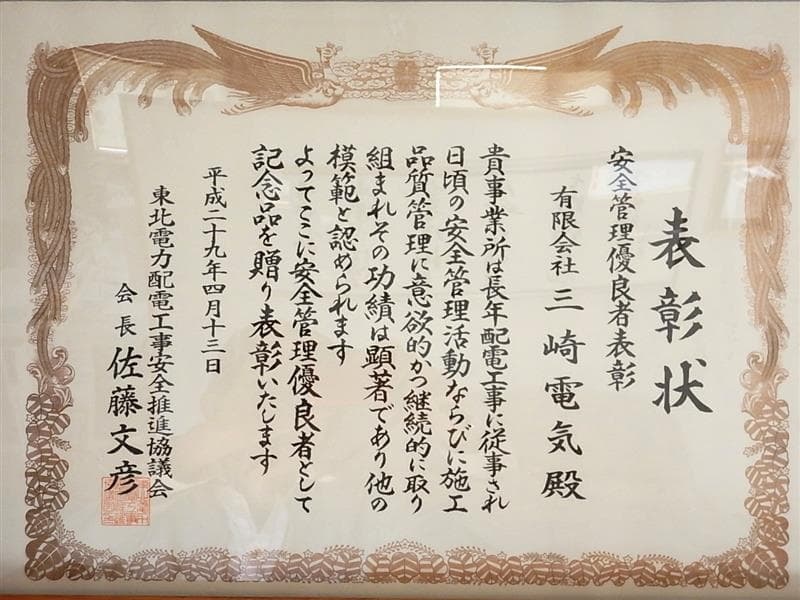 表彰状
安全管理優良者表彰
有限会社 三崎電気殿
貴事業所は長年配電工事に従事され
日頃の安全管理活動ならびに施工
品質管理に意欲的かつ継続的に取り
組まれその功績は顕著であり他の
模範と認められます
よってここに安全管理優良者として
記念品を贈り表彰いたします
平成二十九年四月十三日
東北電力配電工事安全推進協議会
会長 佐藤文彦